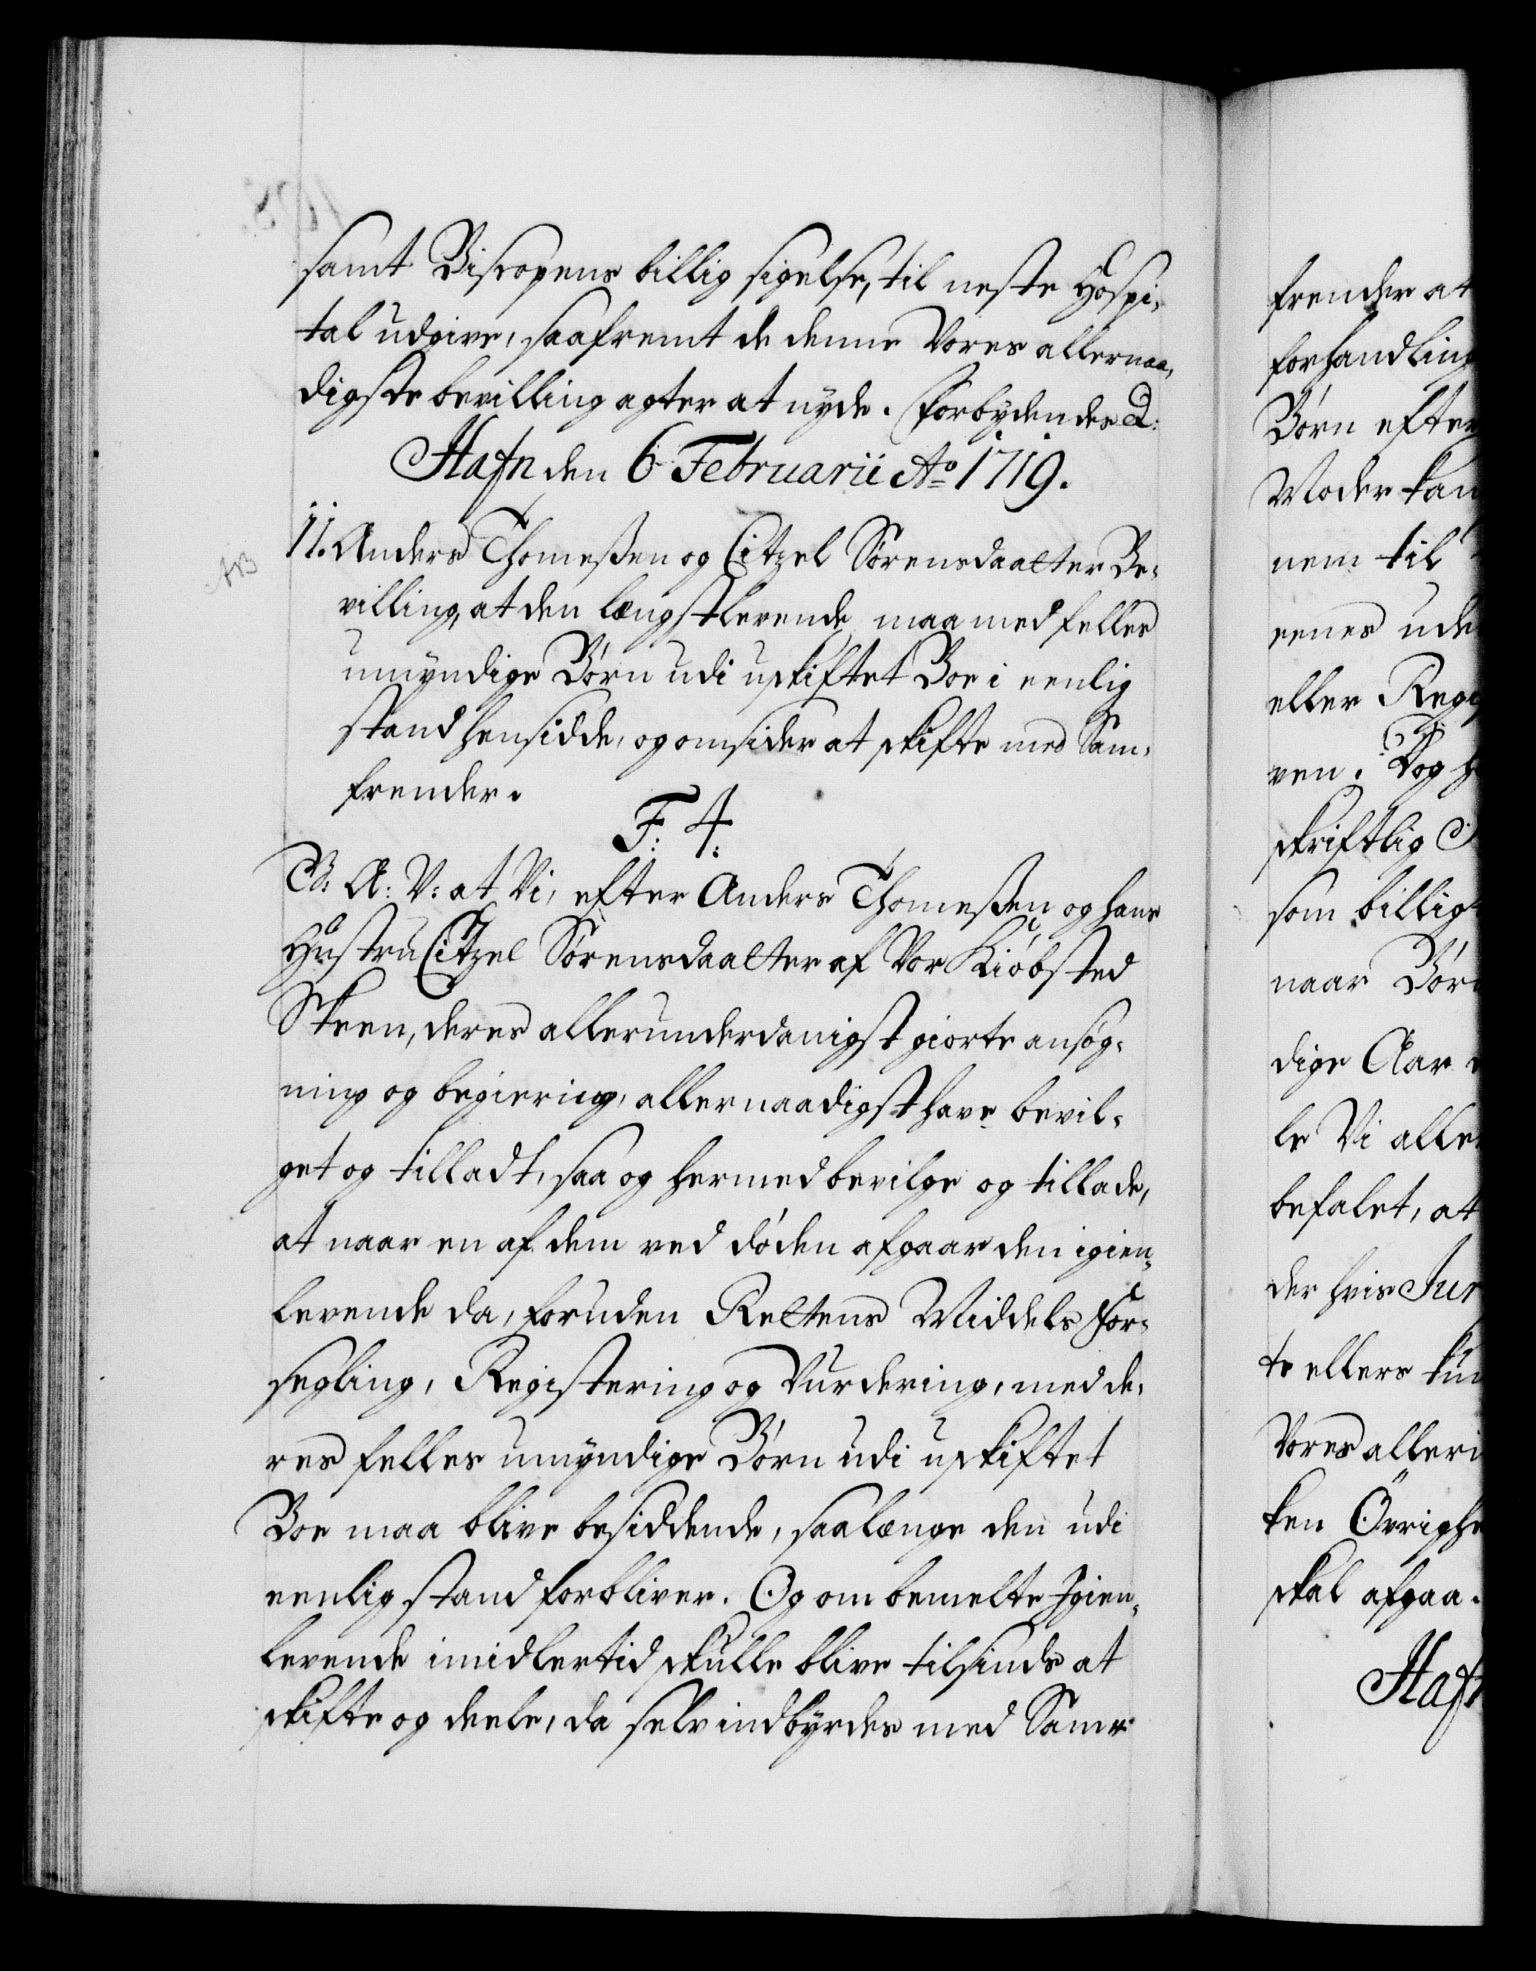 samt Biscopens billig sigelse, til neste Hospi-
tal udgive, saafremt de denne Vores allernaa-
digste bevilling agter at nyde. Forbydendes &:
Hafn den 6 Februarii Ao 1719.
11. Anders Thomeßen og Citzel Sørensdaatter Be-
villing, at den længstlevende maa med felles
umyndige Børn udi uskiftet Boe i eenlig
stand hensidde, og omsider at skifte med Sam-
frender.
F: 4:
B: A: V: at Vi, efter Anders Thomeßen og hans
Hustru Citzel Sørensdaatter af Vor Kiøbsted
Skeen, deres allerunderdanigst giorte ansøg-
ning og begiering, allernaadigst have bevil-
get og tilladt, saa og hermed bevilge og tillade,
at naar en af dem ved døden afgaar den igien-
levende da, foruden Rettens Middels For-
segling, Registering og Vurdering, med de-
res felles umyndige Børn udi uskiftet
Boe maa blive besiddende, saalænge den udi
eenlig stand forbliver. Og om bemelte Igien-
levende imidlertid skulle blive tilsinds at
skifte og deele, da selv indbyrdes med Sam-
frender at
forhandling
Børn efter
Moder kan
nem til
eenes ude
eller Regi
ven. Dog h
skriftlig
som billigt
naar Børn
dige Aar
le Vi alle
befalet, at
der hvis Jur
te ellers kun
Vores allern
ken Øvrighe
skal afgaa.
Hafn